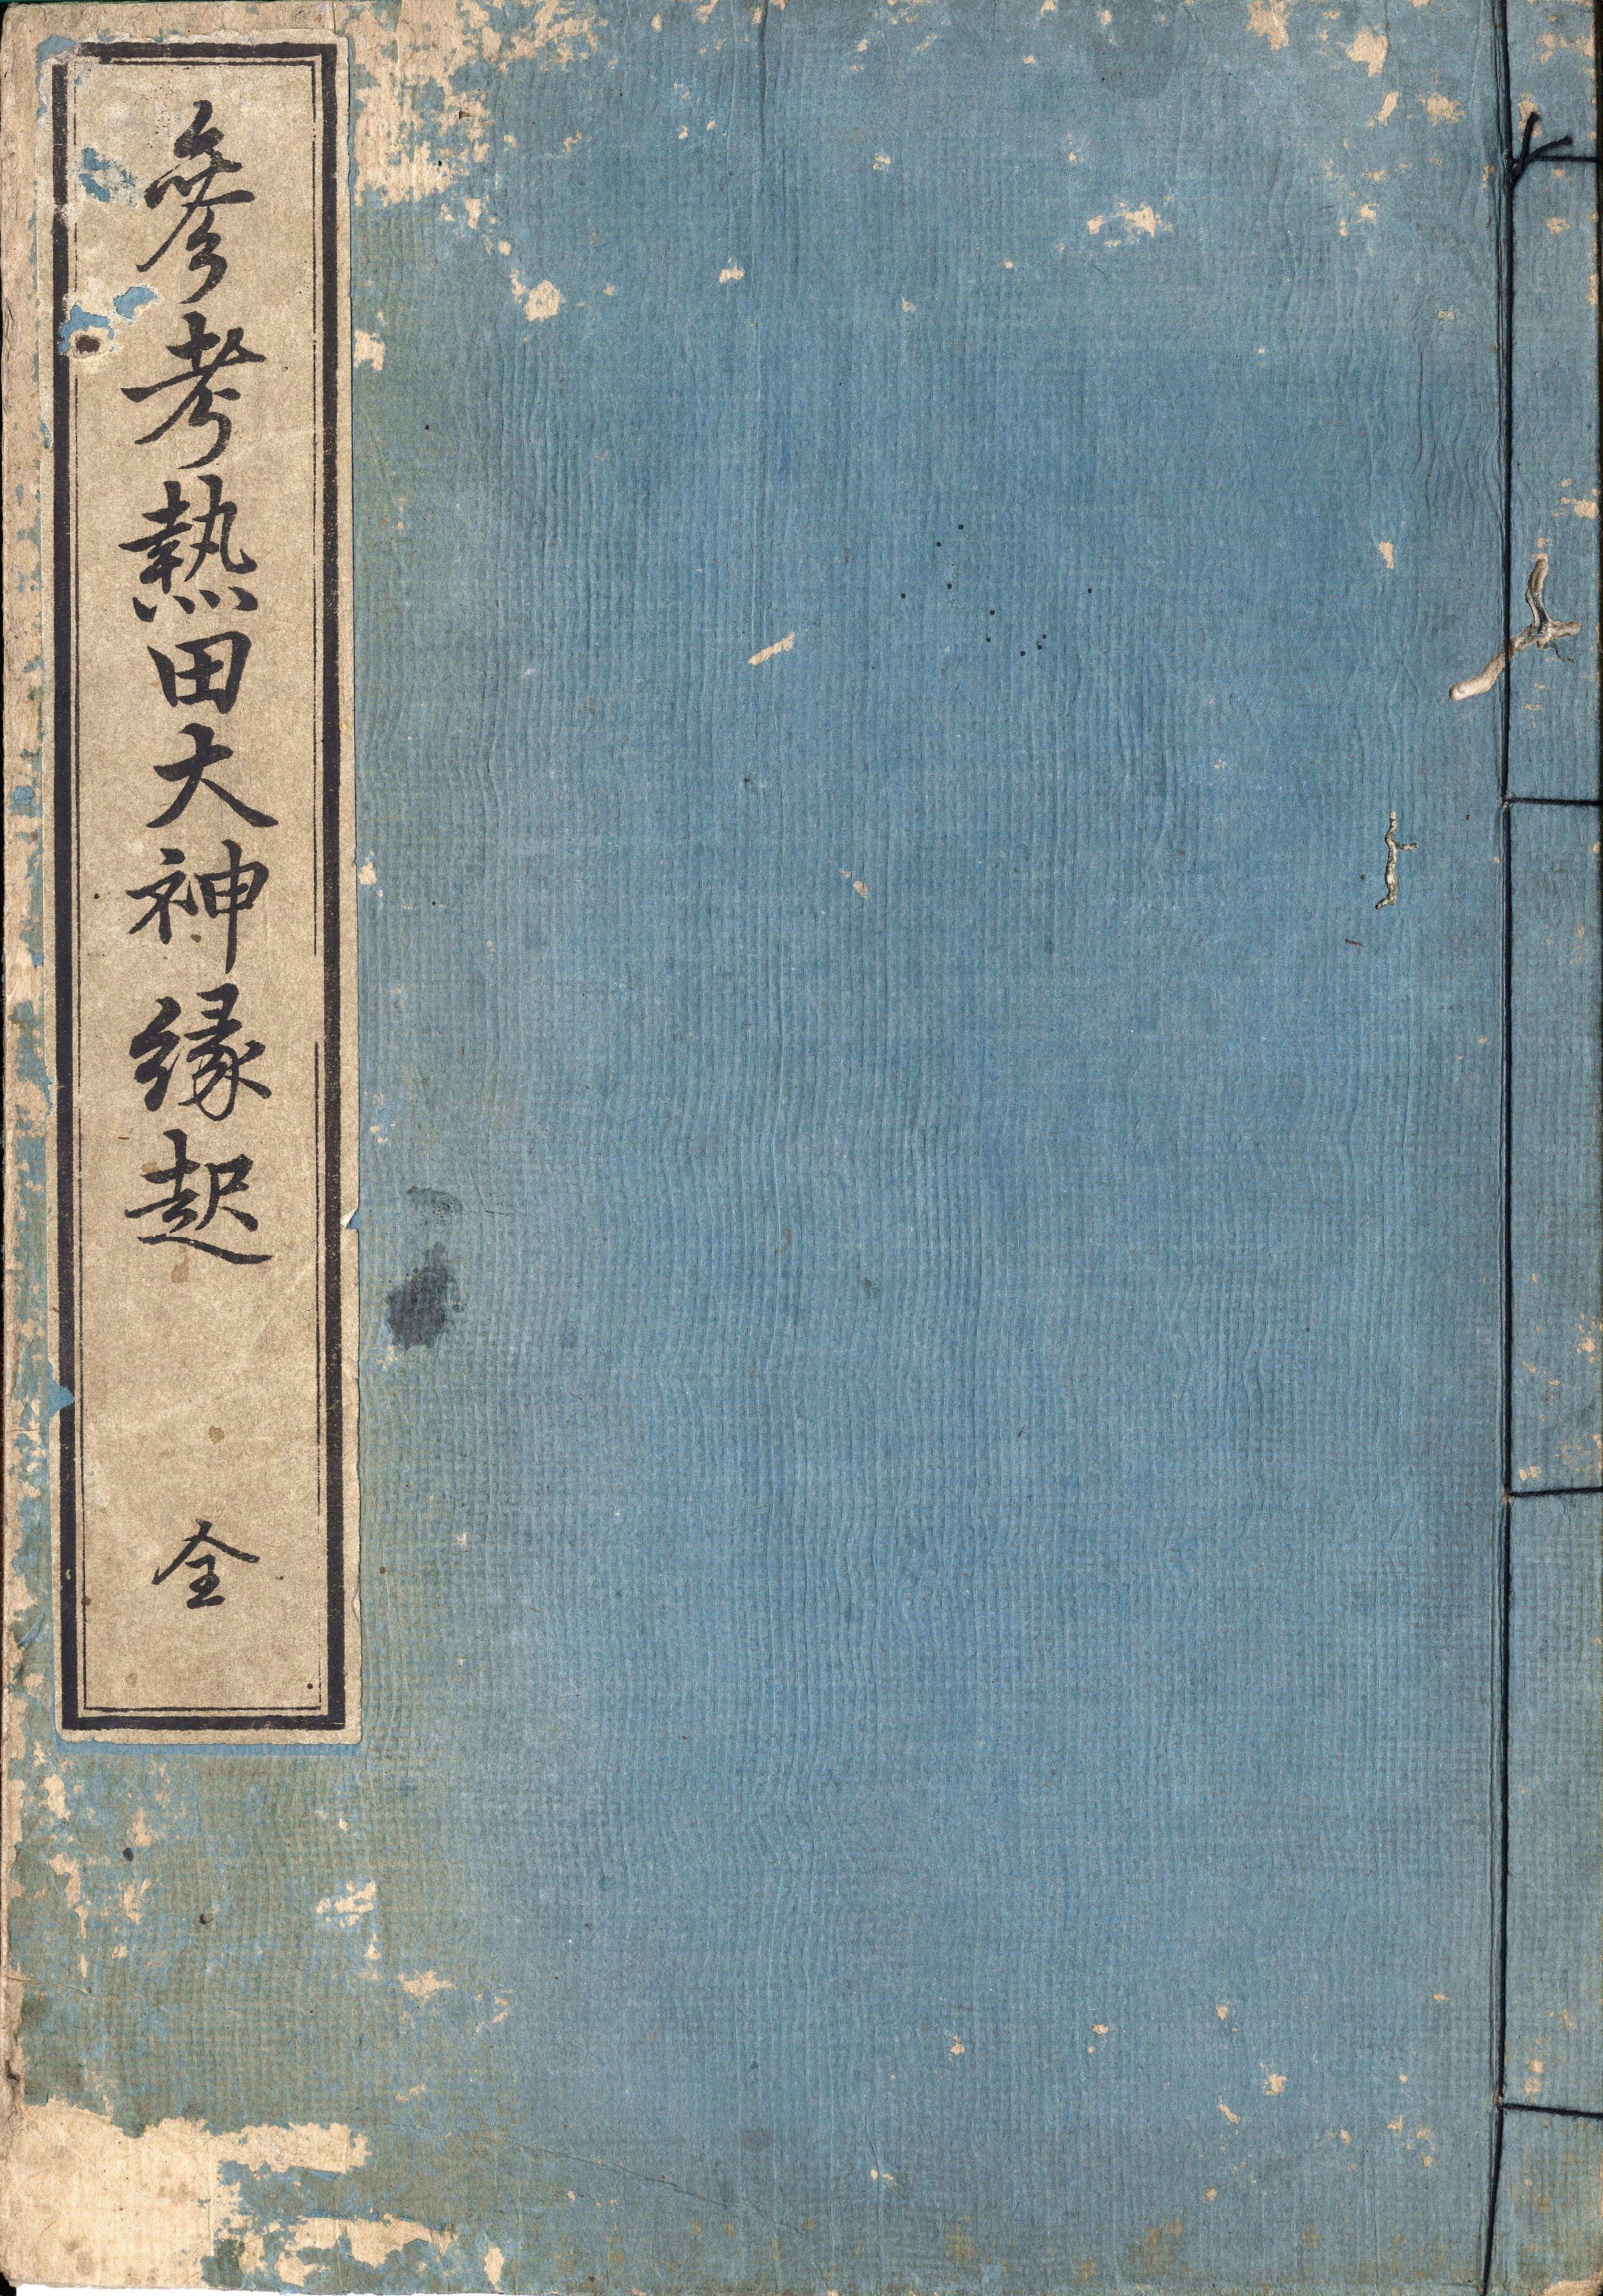 參考熱田大神縁起 全